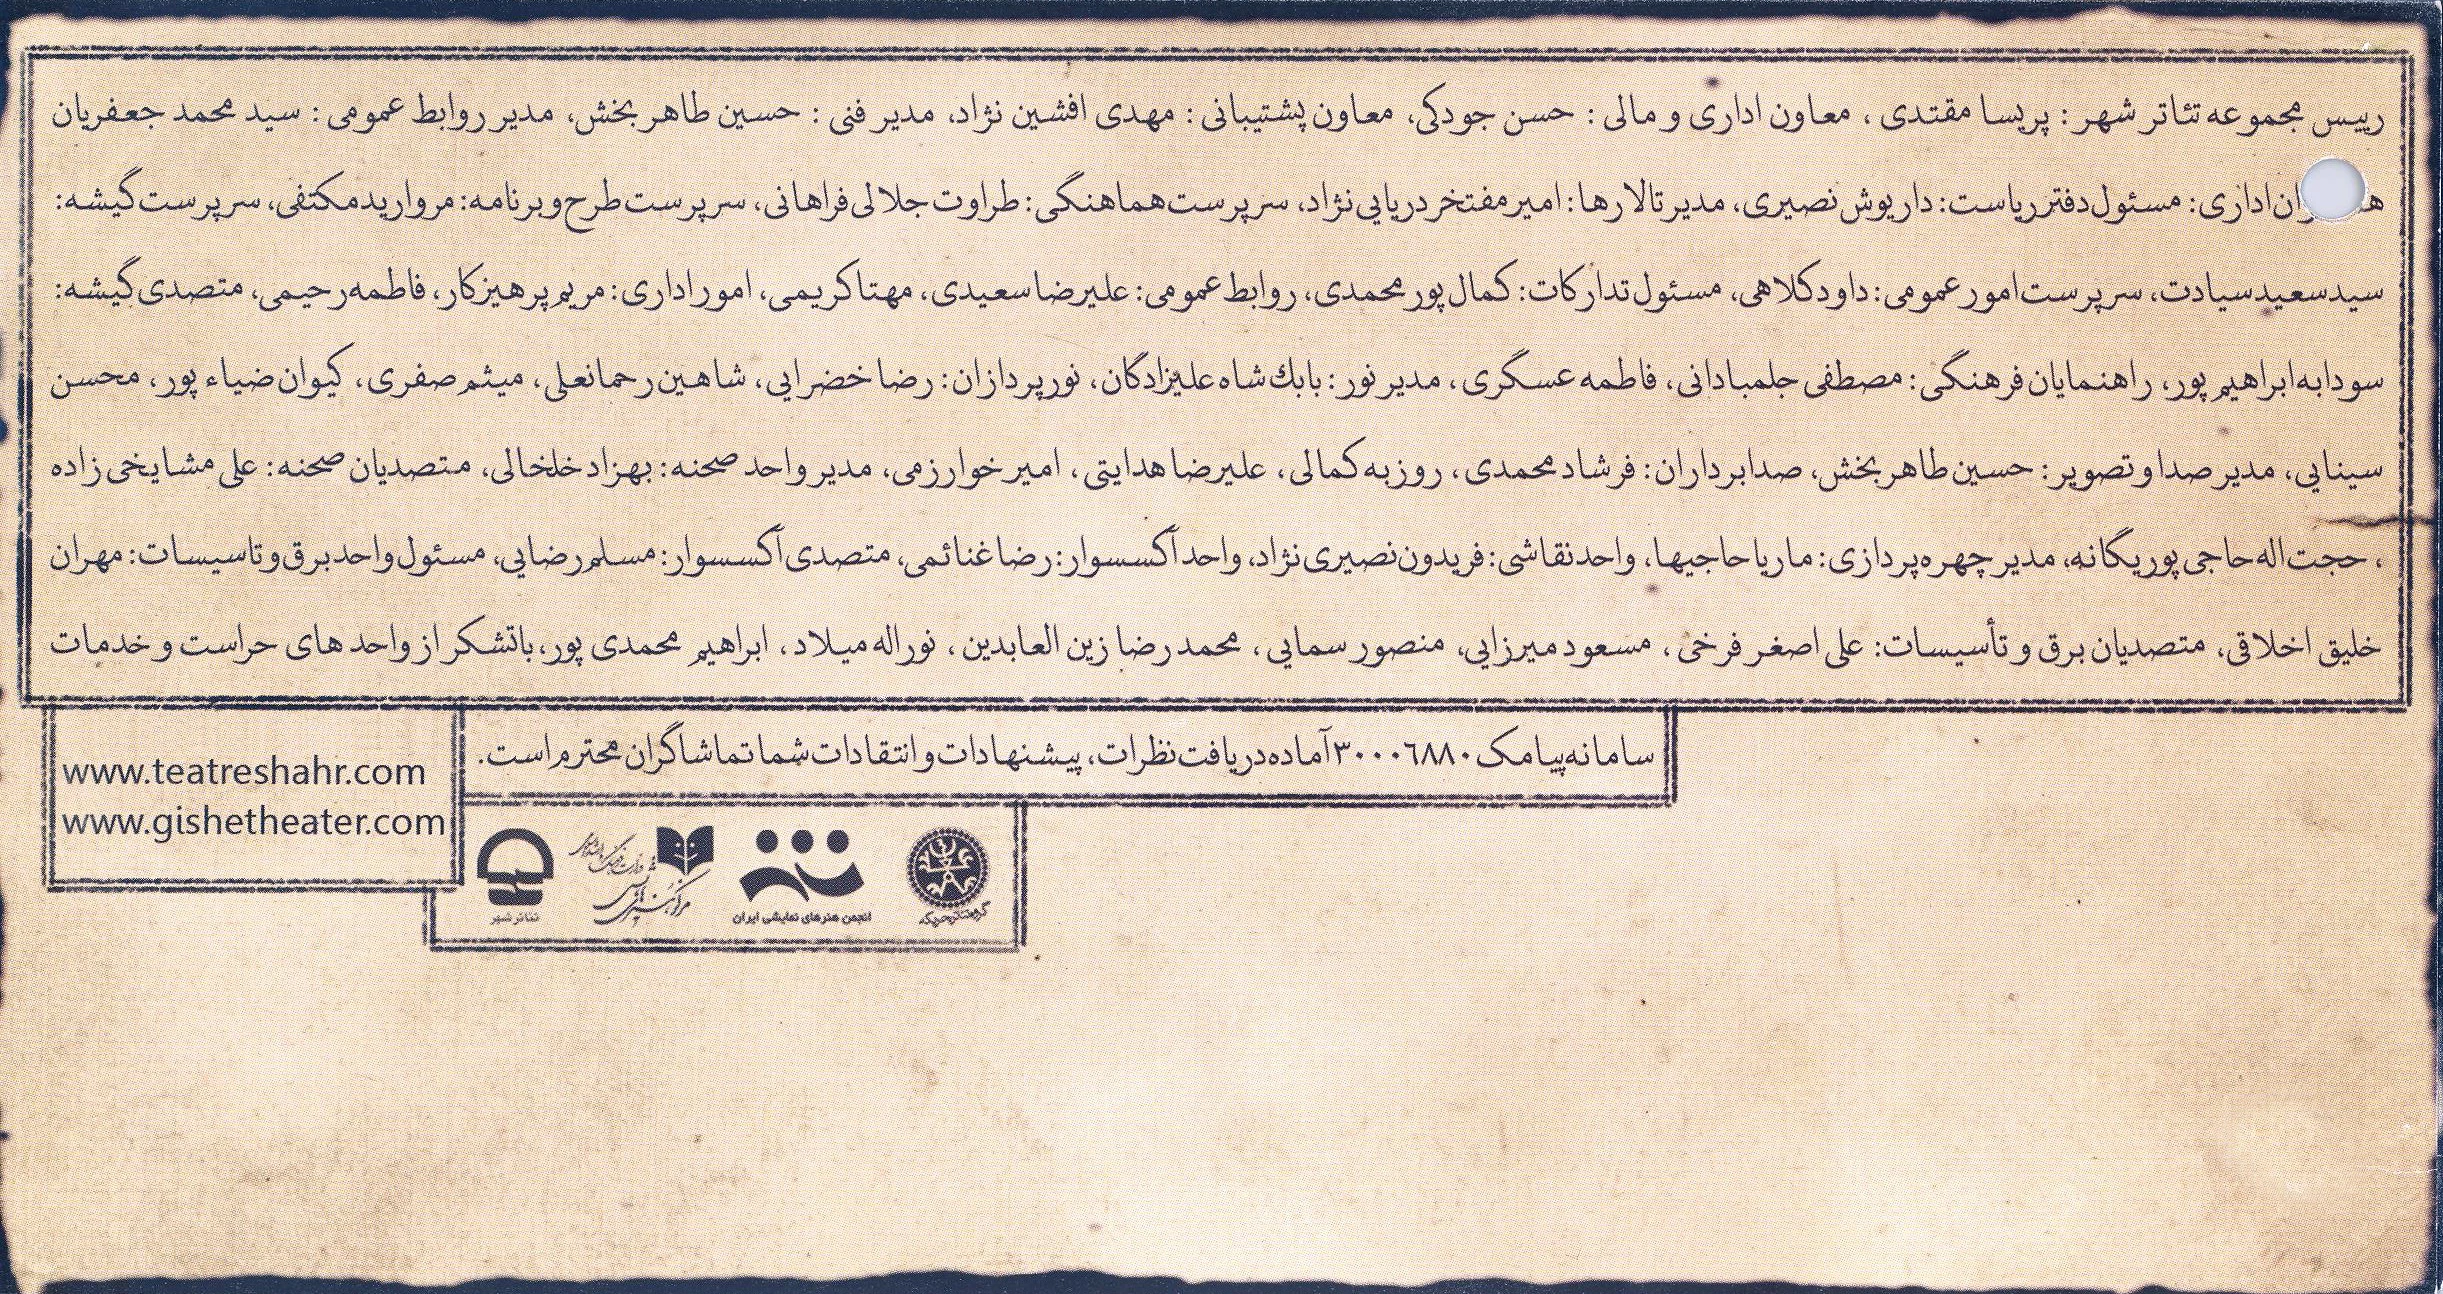 رییس مجموعه تئاتر شهر : پریسا مقتدی ، معاون اداری و مالی : حسن جودکی، معاون پشتیبانی : مهدی افشین نژاد، مدیر فنی : حسین طاهر بخش، مدیر روابط عمومی : سید محمد جعفریان
اداری: مسئول دفتر ریاست: داریوش نصیری، مدیر تالارها: امیر مفتخر دریایی نژاد، سرپرست هماهنگی: طراوت جلالی فراهانی، سرپرست طرح و برنامه: مروارید مکتفی، سرپرست گیشه:
سید سعید سیادت، سرپرست امور عمومی: داود کلاهی، مسئول تدارکات: کمال پور محمدی، روابط عمومی: علیرضا سعیدی، مهتا کریمی، امور اداری: مریم پرهیزکار، فاطمه رحیمی، متصدی گیشه:
سودابه ابراهیم پور، راهنمایان فرهنگی: مصطفی جلمبادانی، فاطمه عسگری، مدیر نور: بابك شاه علیزادگان، نورپردازان: رضا خضرایی، شاهین رحمانعلی، میثم صفری، کیوان ضیاء پور، محسن
سینایی، مدیر صدا و تصویر: حسین طاهر بخش، صدابرداران: فرشاد محمدی، روزبه کمالی، علیرضا هدایتی، امیر خوارزمی، مدیر واحد صحنه: بهزاد خلخالی، متصدیان صحنه: علی مشایخی زاده
، حجت اله حاجی پور یگانه، مدیر چهره پردازی: ماریا حاجیها، واحد نقاشی: فریدون نصیری نژاد، واحد آکسسوار: رضا غنائمی، متصدی آکسسوار: مسلم رضایی، مسئول واحد برق و تاسیسات: مهران
خلیق اخلاقی، متصدیان برق و تأسیسات: علی اصغر فرخی، مسعود میرزایی، منصور سمایی، محمد رضا زین العابدین، نوراله میلاد، ابراهیم محمدی پور، باتشکر از واحد های حراست و خدمات
سامانه پیامک ۳۰۰۰٦۸۸۰ آماده دریافت نظرات، پیشنهادات و انتقادات شما تماشاگران محترم است.
www.teatreshahr.com
www.gishetheater.com
انجمن هنرهای نمایشی ایران
تئاتر شهر